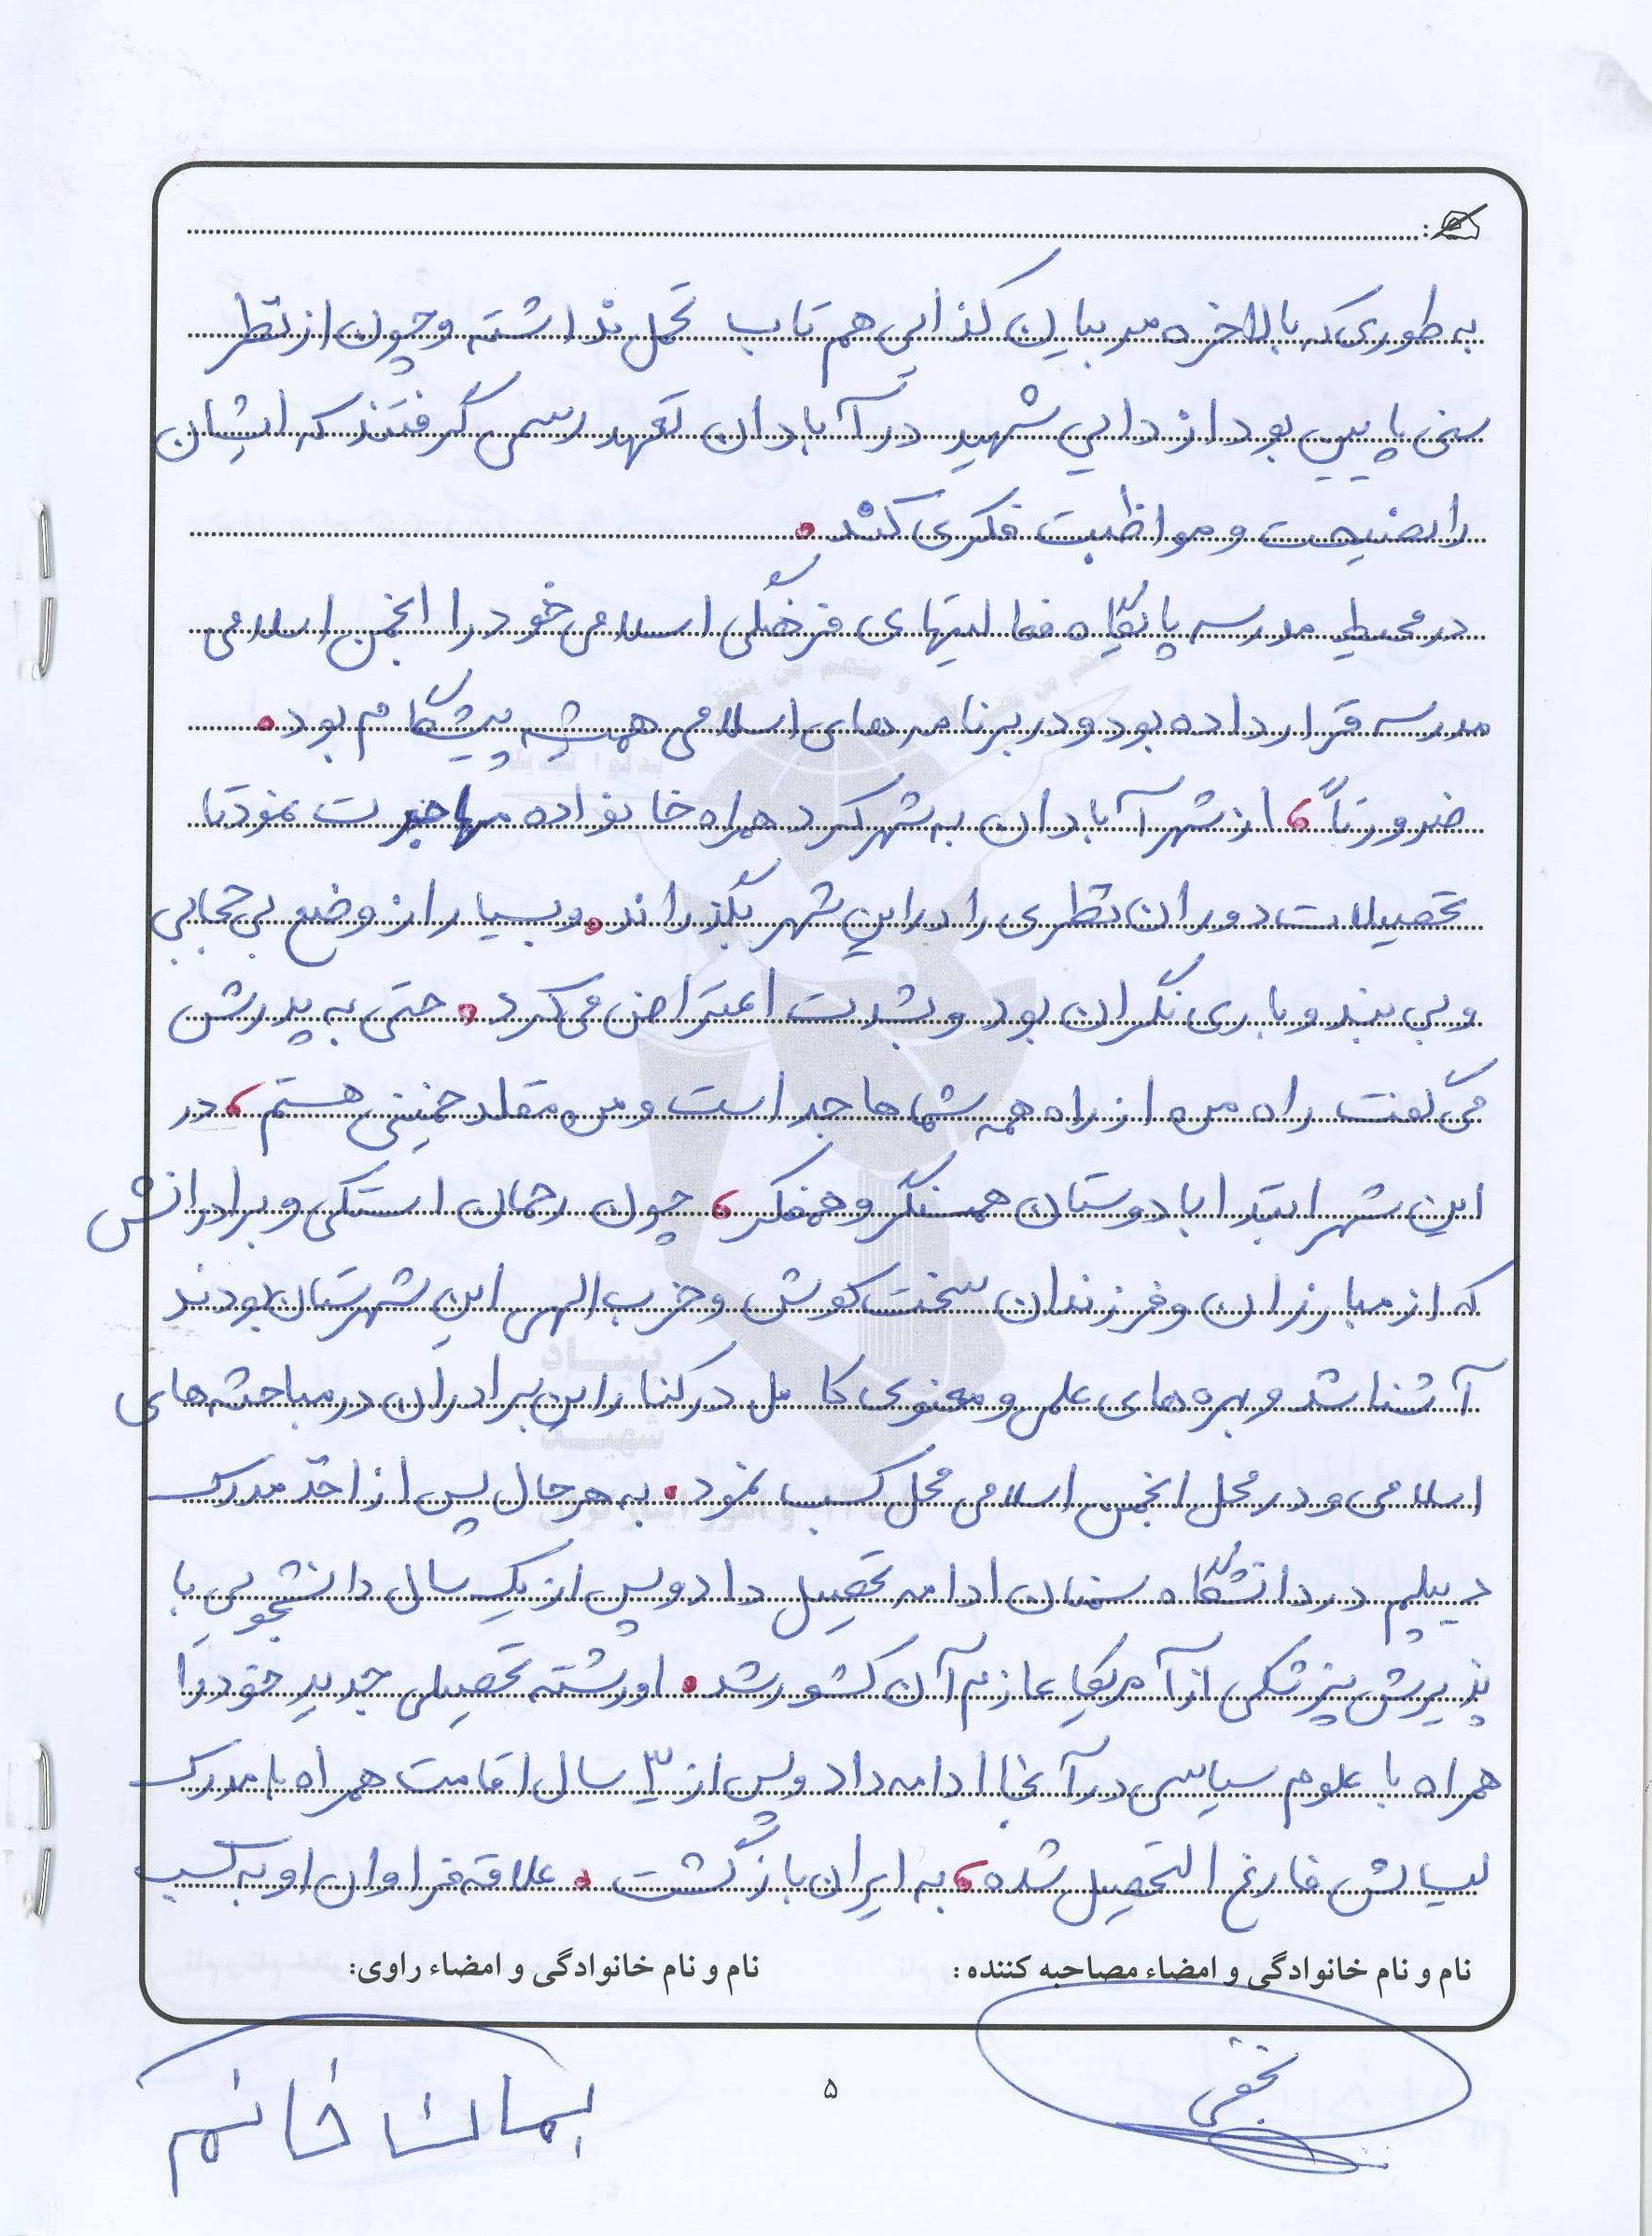 به طوری که بالاخره مربیان کذایی هم تاب تحمل نداشته و چون از نظر
سنی پایین بود از دایی شهید در آبادان تعهد رسمی گرفتند که ایشان
را نصیحت و مواظبت فکری کند.
در محیط مدرسه پایگاه فعالیتهای فرهنگی اسلامی خود را انجمن اسلامی
مدرسه قرار داده بود و در برنامه های اسلامی همیشه پیشگام بود.
ضرورتاً، از شهر آبادان به شهرکرد همراه خانواده مهاجرت نمود تا
تحصیلات دوران نظری را در این شهر بگذراند. و بسیار از وضع بی حجابی
و بی بند و باری نگران بود و بشدت اعتراض می کرد. حتی به پدرش
می گفت راه من از راه همه شماها جداست و من مقلد خمینی هستم، در
این شهر ابتدا با دوستان همسنگر و همفکر، چون رحمان استکی و برادرانش
که از مبارزان و فرزندان سخت کوش و حزب الهی این شهرستان بودند
آشنا شد و بهره های علمی و معنوی کامل در کنار این برادران در مباحثه های
اسلامی و در محل انجمن اسلامی محل کسب نمود. به هر حال پس از اخذ مدرک
دیپلم در دانشگاه سمنان ادامه تحصیل داد و پس از یک سال دانشجویی با
پذیرش پزشکی از آمریکا عازم آن کشور شد. او رشته تحصیلی جدید خود را
همراه با علوم سیاسی در آنجا ادامه داد و پس از ۳ سال اقامت همراه با مدرک
لیسانس فارغ التحصیل شده، به ایران بازگشت. علاقه فراوان او به کسب
نام و نام خانوادگی و امضاء مصاحبه کننده: نام و نام خانوادگی و امضاء راوی:
نجفی
۵
خانم